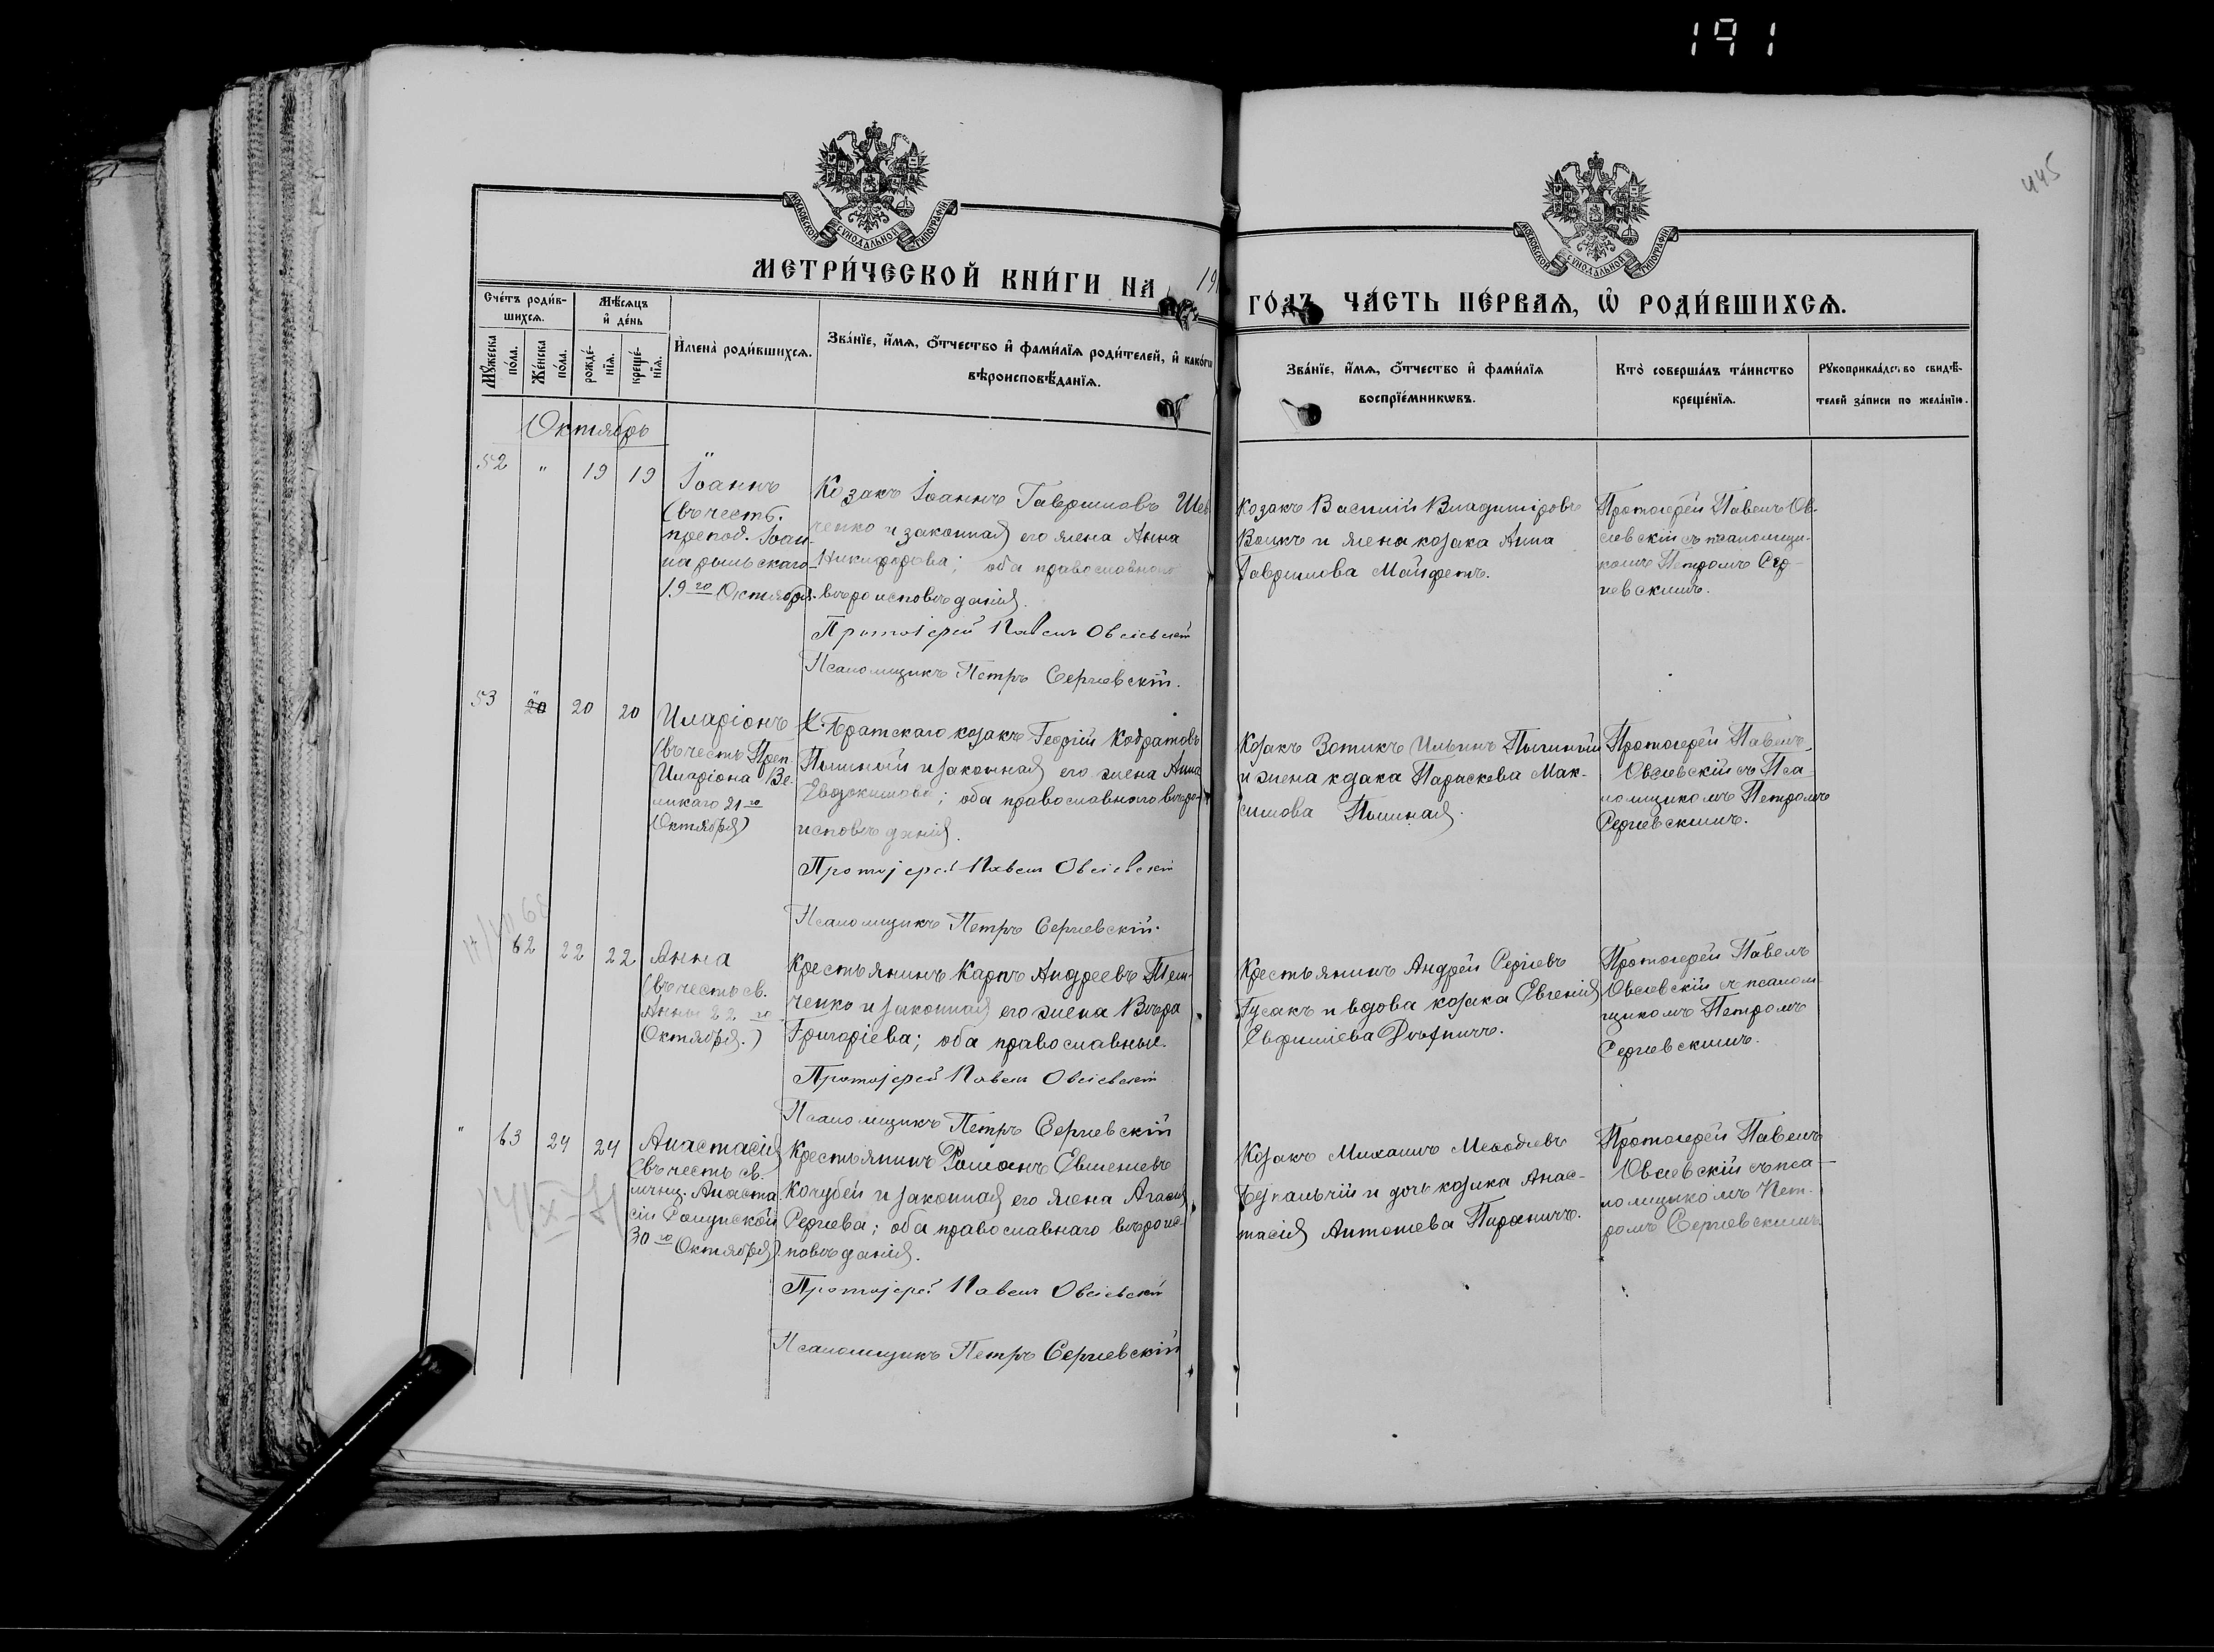 191
445
МОСКОВСКОЙ СѴНОДАЛЬНОЙ ТИПОГРАФІИ
МОСКОВСКОЙ СѴНОДАЛЬНОЙ ТИПОГРАФІИ
МЕТРИ́ЧЕСКОЙ КНИ́ГИ НА 19
ГО́ДЪ ЧА́СТЬ ПЕ́РВАѦ, Ѡ҆ РОДИ́ВШИХСѦ.
Сче́тъ роди́в-
шихсѧ.
Мѣ́сѧцъ
и҆ де́нь
Мꙋ́жеска
по́ла.
Же́нска
по́ла.
рожде́-
нїѧ.
креще́-
нїѧ.
И҆мена̀ роди́вшихсѧ.
Зва́нїе, и҆́мѧ, ѻ҆́тчество и҆ фами́лїѧ роди́телей, и҆ како́гѡ
вѣроисповѣ́данїѧ.
Зва́нїе, и҆́мѧ, ѻ҆́тчество и҆ фами́лїѧ
воспрїе́мникѡвъ.
Кто̀ соверша́лъ та́инство
креще́нїѧ.
Рꙋкоприкла́дство свидѣ́-
телей за́писи по жела́нїю.
Октябрь
52 " 19 19
Іоаннъ
(въ честь
препод. Іоан-
на рыльскаго
19го Октября.
Козакъ Іоаннъ Гавриловъ Шев
ченко и законная его жена Анна
Никифорова; оба православнаго
вѣроисповѣданія.
Протоіерей Павелъ Овсіевскій
Псаломщикъ Петръ Сергіевскій.
Козакъ Василій Владиміровъ
Волкъ и жена козака Анна
Гаврилова Майфетъ.
Протоіерей Павелъ Ов-
сіевскій съ псаломщи-
комъ Петромъ Сер-
гіевскимъ.
53 20 20 20
Иларіонъ
(въ честь Преп.
Иларіона Ве-
ликаго 21го
Октября)
Х. Братскаго козакъ Георгій Кодратовъ
и законная его жена Анна
Евдокимова; оба православнаго вѣро-
исповѣданія.
Протоіерей Павелъ Овсіевскій
Псаломщикъ Петръ Сергіевскій.
Козакъ Зотикъ Ильинъ
и жена козака Параскева Мак-
симова
Протоіерей Павелъ
Овсіевскій съ Пса-
ломщикомъ Петромъ
Сергіевскимъ.
62 22 22
Анна
(въ честь св.
Анны 22го
Октября.)
Крестьянинъ Карпъ Андреевъ
ченко и законная его жена Вѣра
Григоріева; оба православные.
Протоіерей Павелъ Овсіевскій
Псаломщикъ Петръ Сергіевскій
Крестьянинъ Андрей Сергіевъ
Гусакъ и вдова козака Евгенія
Евфиміева
Протоіерей Павелъ
Овсіевскій съ псалом-
щикомъ Петромъ
Сергіевскимъ.
" 63 24 24
Анастасія
(въ честь св.
мчнц. Анаста
сіи Римской
30го Октября).
Крестьянинъ Романъ Евменіевъ
Кочубей и законная его жена Агафія
Сергіева; оба православнаго вѣроис-
повѣданія.
Протоіерей Павелъ Овсіевскій
Псаломщикъ Петръ Сергіевскій
Козакъ Михаилъ Меѳодіевъ
и дочь козака Анас-
тасія Антоніева
Протоіерей Павелъ
Овсіевскій съ пса-
ломщикомъ Пет-
ромъ Сергіевскимъ